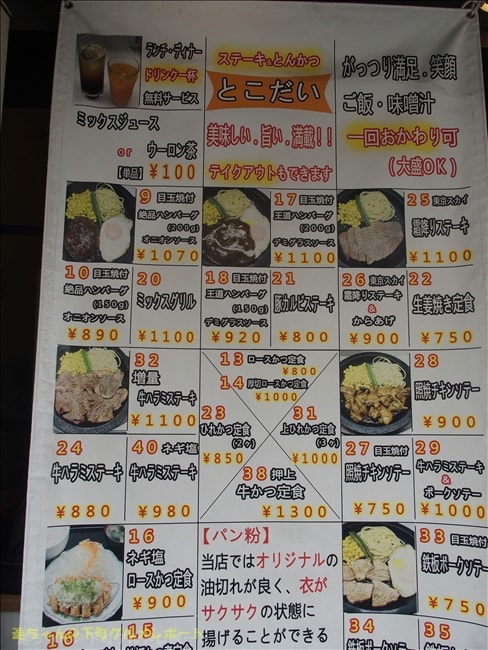 ランチ・ディナー
ドリンク一杯
無料サービス
ミックスジュース
or ウーロン茶
【単品】¥100
ステーキ&とんかつ
とこだい
美味しい.旨い.満載!!
テイクアウトもできます
がっつり満足.笑顔
ご飯・味噌汁
一回おかわり可
(大盛OK)
9 目玉焼付
絶品ハンバーグ
(200g)
オニオンソース
¥1070
17 目玉焼付
王道ハンバーグ
(200g)
デミグラスソース
¥1100
25 東京スカイ
霜降りステーキ
¥1100
10 目玉焼付
絶品ハンバーグ
(150g)
オニオンソース
¥890
20
ミックスグリル
¥1100
18 目玉焼付
王道ハンバーグ
(150g)
デミグラスソース
¥920
21
豚カルビステーキ
¥800
26 東京スカイ
霜降りステーキ
&
からあげ
¥900
22
生姜焼き定食
¥750
32
増量
牛ハラミステーキ
¥1100
13 ロースかつ定食
¥800
14 厚切ロースかつ定食
¥1000
23
ひれかつ定食
(2ヶ)
¥850
31
上ひれかつ定食
(3ヶ)
¥1000
38 押上
牛かつ定食
¥1300
28
照焼チキンソテー
¥900
24
牛ハラミステーキ
¥880
40 ネギ塩
牛ハラミステーキ
¥980
27 目玉焼付
照焼チキンソテー
¥750
29
牛ハラミステーキ
&
ポークソテー
¥1000
16
ネギ塩
ロースかつ定食
¥900
【パン粉】
当店ではオリジナルの
油切れが良く、衣が
サクサクの状態に
揚げることができる
33 目玉焼付
鉄板ポークソテー
¥750
15
34
35